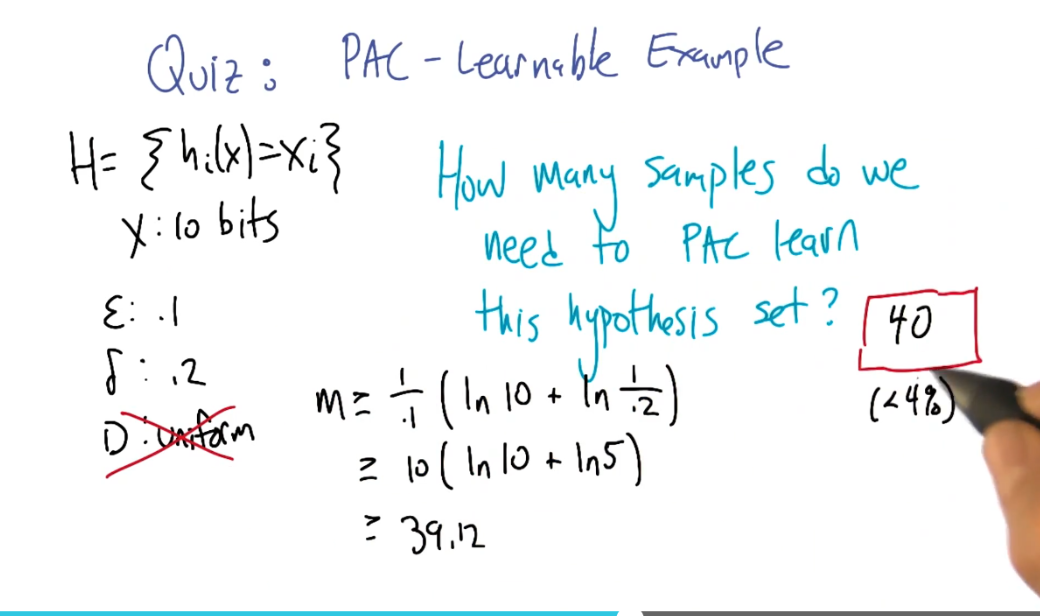 Quiz: PAC-Learnable Example
H= {hᵢ(x)=xᵢ}
X: 10 bits
How many samples do we
need to PAC learn
this hypothesis set?
40
(<4%)
ε: .1
δ: .2
D: uniform
m ≥ 1/.1 (ln 10 + ln 1/.2)
≥ 10(ln 10 + ln5)
≥ 39.12